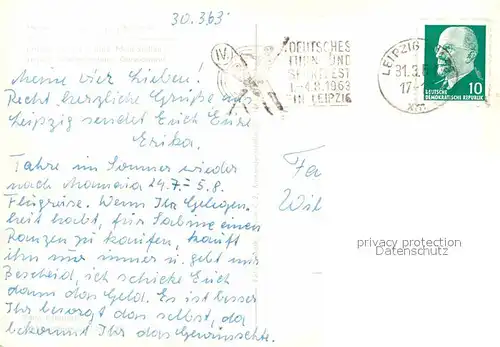 30.3.63
Meine vier Lieben!
Recht herzliche Grüße aus
Leipzig sendet Euch Eure
Erika.
Fahre im Sommer wieder
nach Mamaia 29.7.-5.8.
Flugreise. Wenn Ihr Gelegen-
heit habt, für Sabine einen
Ranzen zu kaufen, kauft
ihn nur immer u. gebt mir
Bescheid, ich schicke Euch
dann das Geld. Es ist besser
Ihr besorgt das selbst, da
bekommt Ihr das Gewünschte.
IV.
DEUTSCHES
TURN- UND
SPORTFEST
1.-4.8.1963
IN LEIPZIG
LEIPZIG
31.3.6
17-
10
DEUTSCHE
DEMOKRATISCHE REPUBLIK
Fa
Wil
privacy protection
Datenschutz